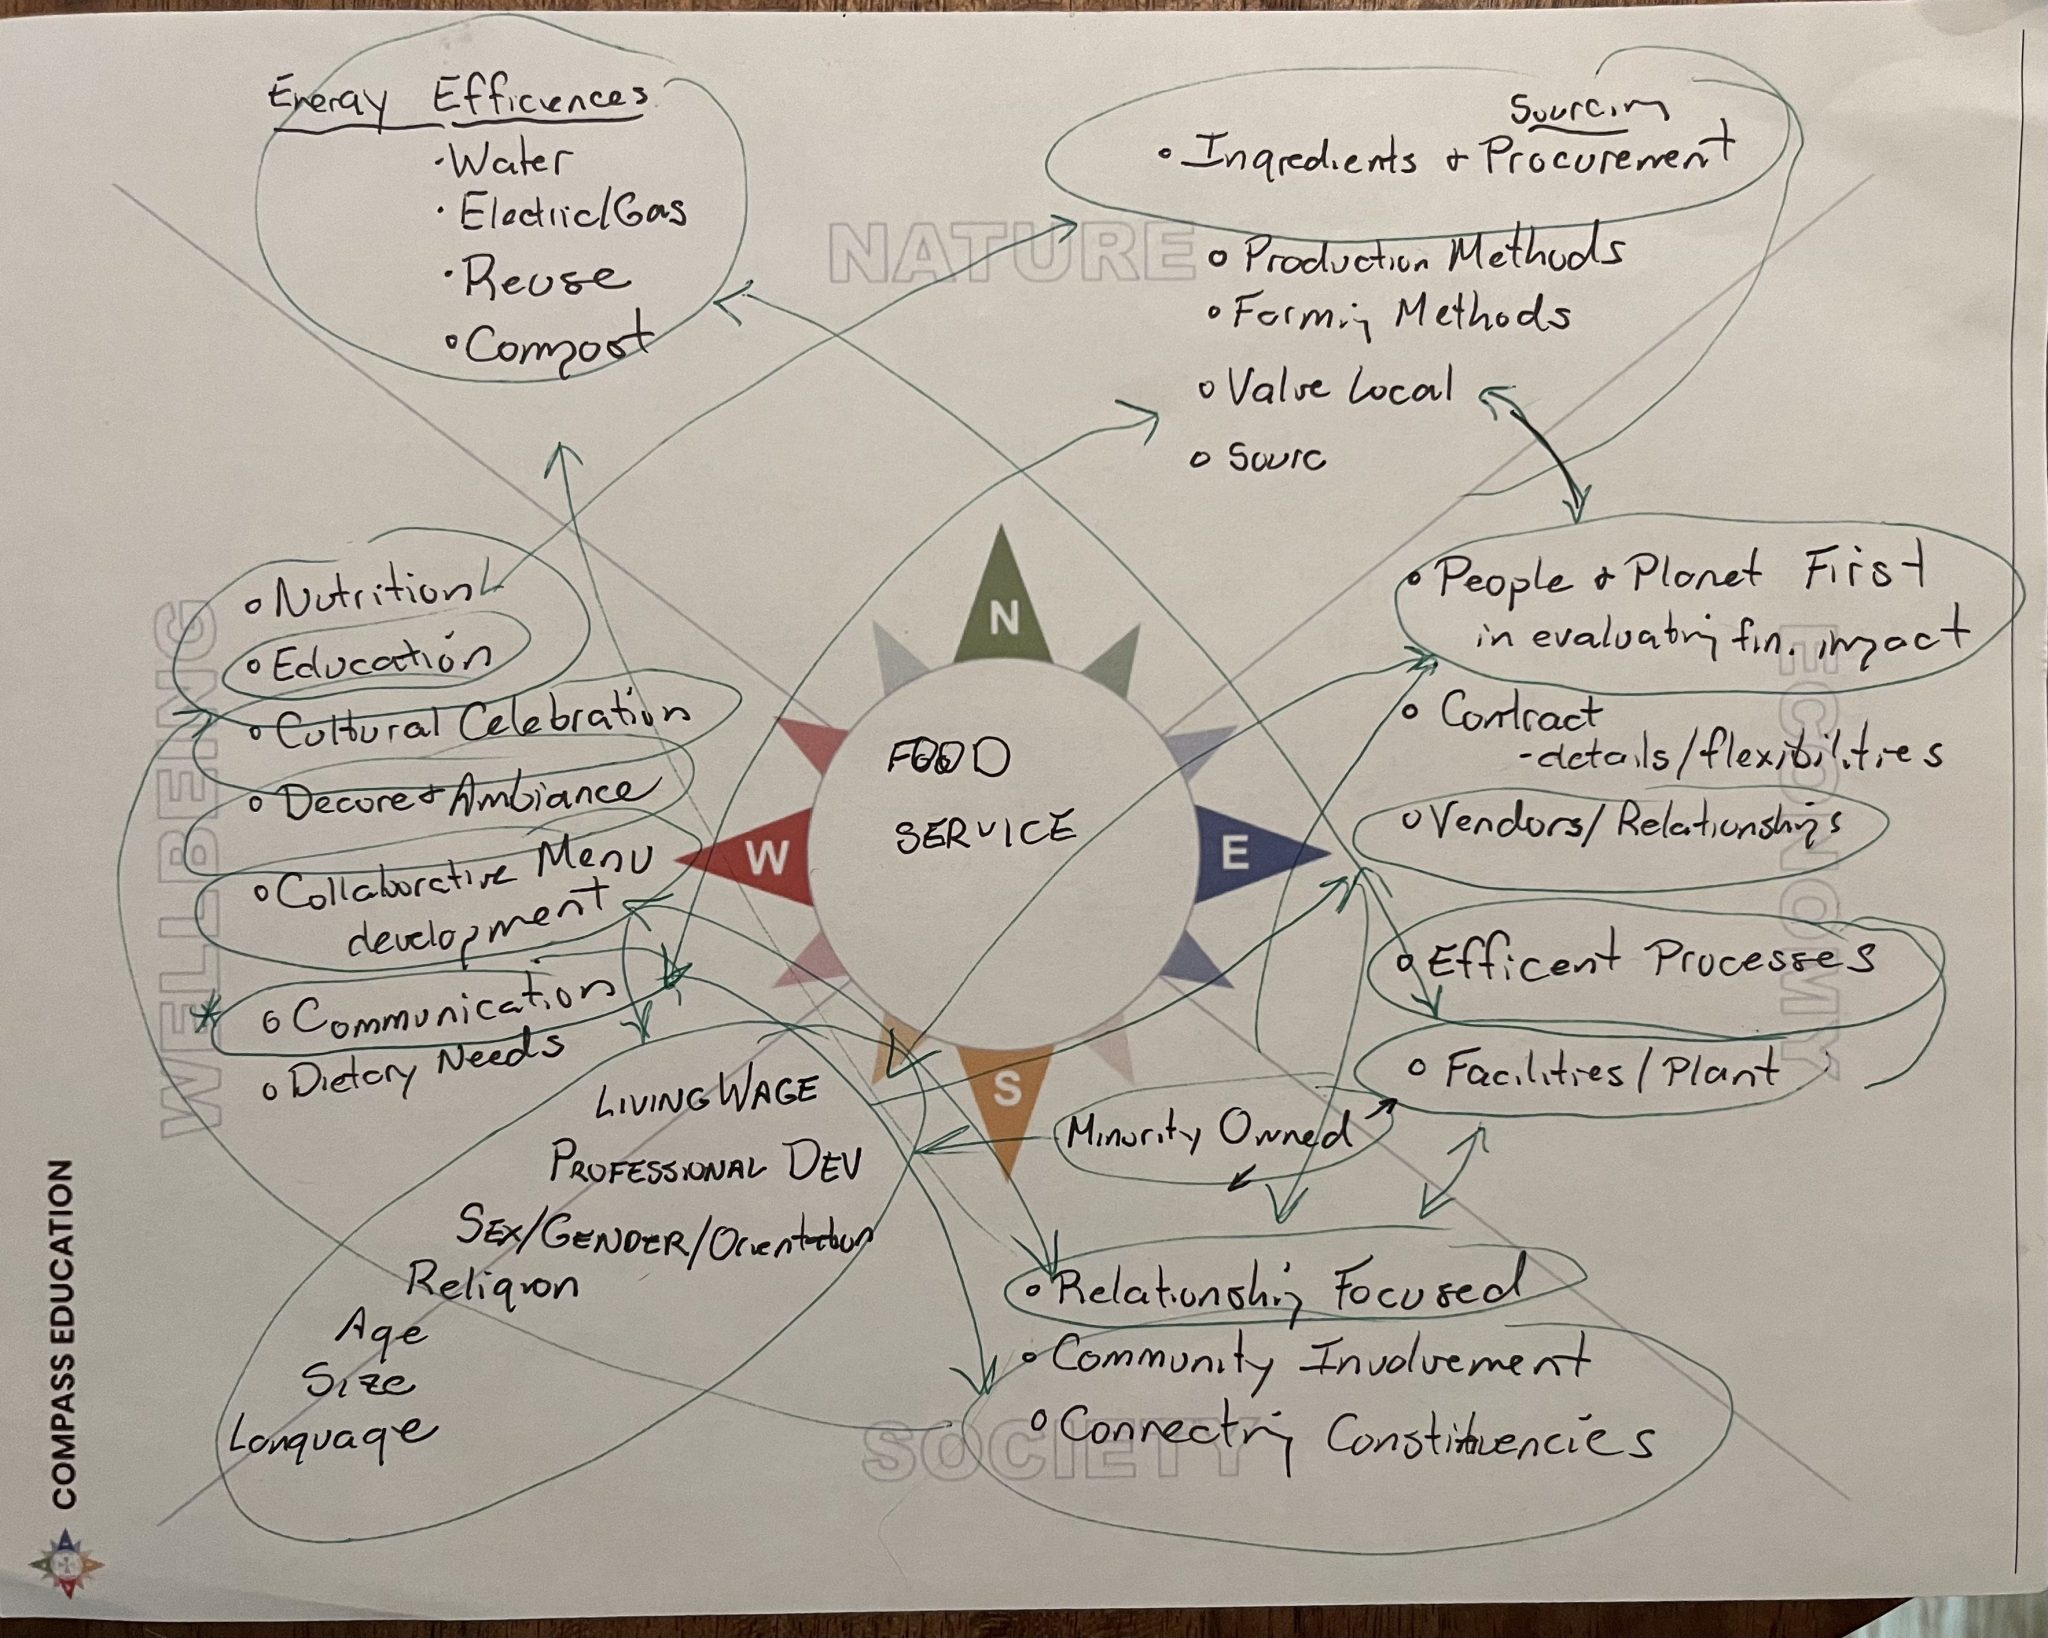 Energy Efficiences
· Water
· Electric/Gas
· Reuse
• Compost
Sourcing
• Ingredients & Procurement
• Production Methods
• Farming Methods
• Value Local
• Sourc
NATURE
• Nutrition
• Education
• Cultural Celebration
• Decore & Ambiance
• Collaborative Menu
development
* • Communication
• Dietary Needs
WELLBEING
N
W
E
S
FOOD
SERVICE
• People & Planet First
in evaluating fin. impact
• Contract
- details/flexibilities
• Vendors/Relationships
• Efficent Processes
• Facilities/Plant
ECONOMY
LIVING WAGE
PROFESSIONAL DEV
SEX/GENDER/Orientation
Religion
Age
Size
Language
Minority Owned
• Relationship Focused
• Community Involvement
• Connecting Constituencies
SOCIETY
COMPASS EDUCATION